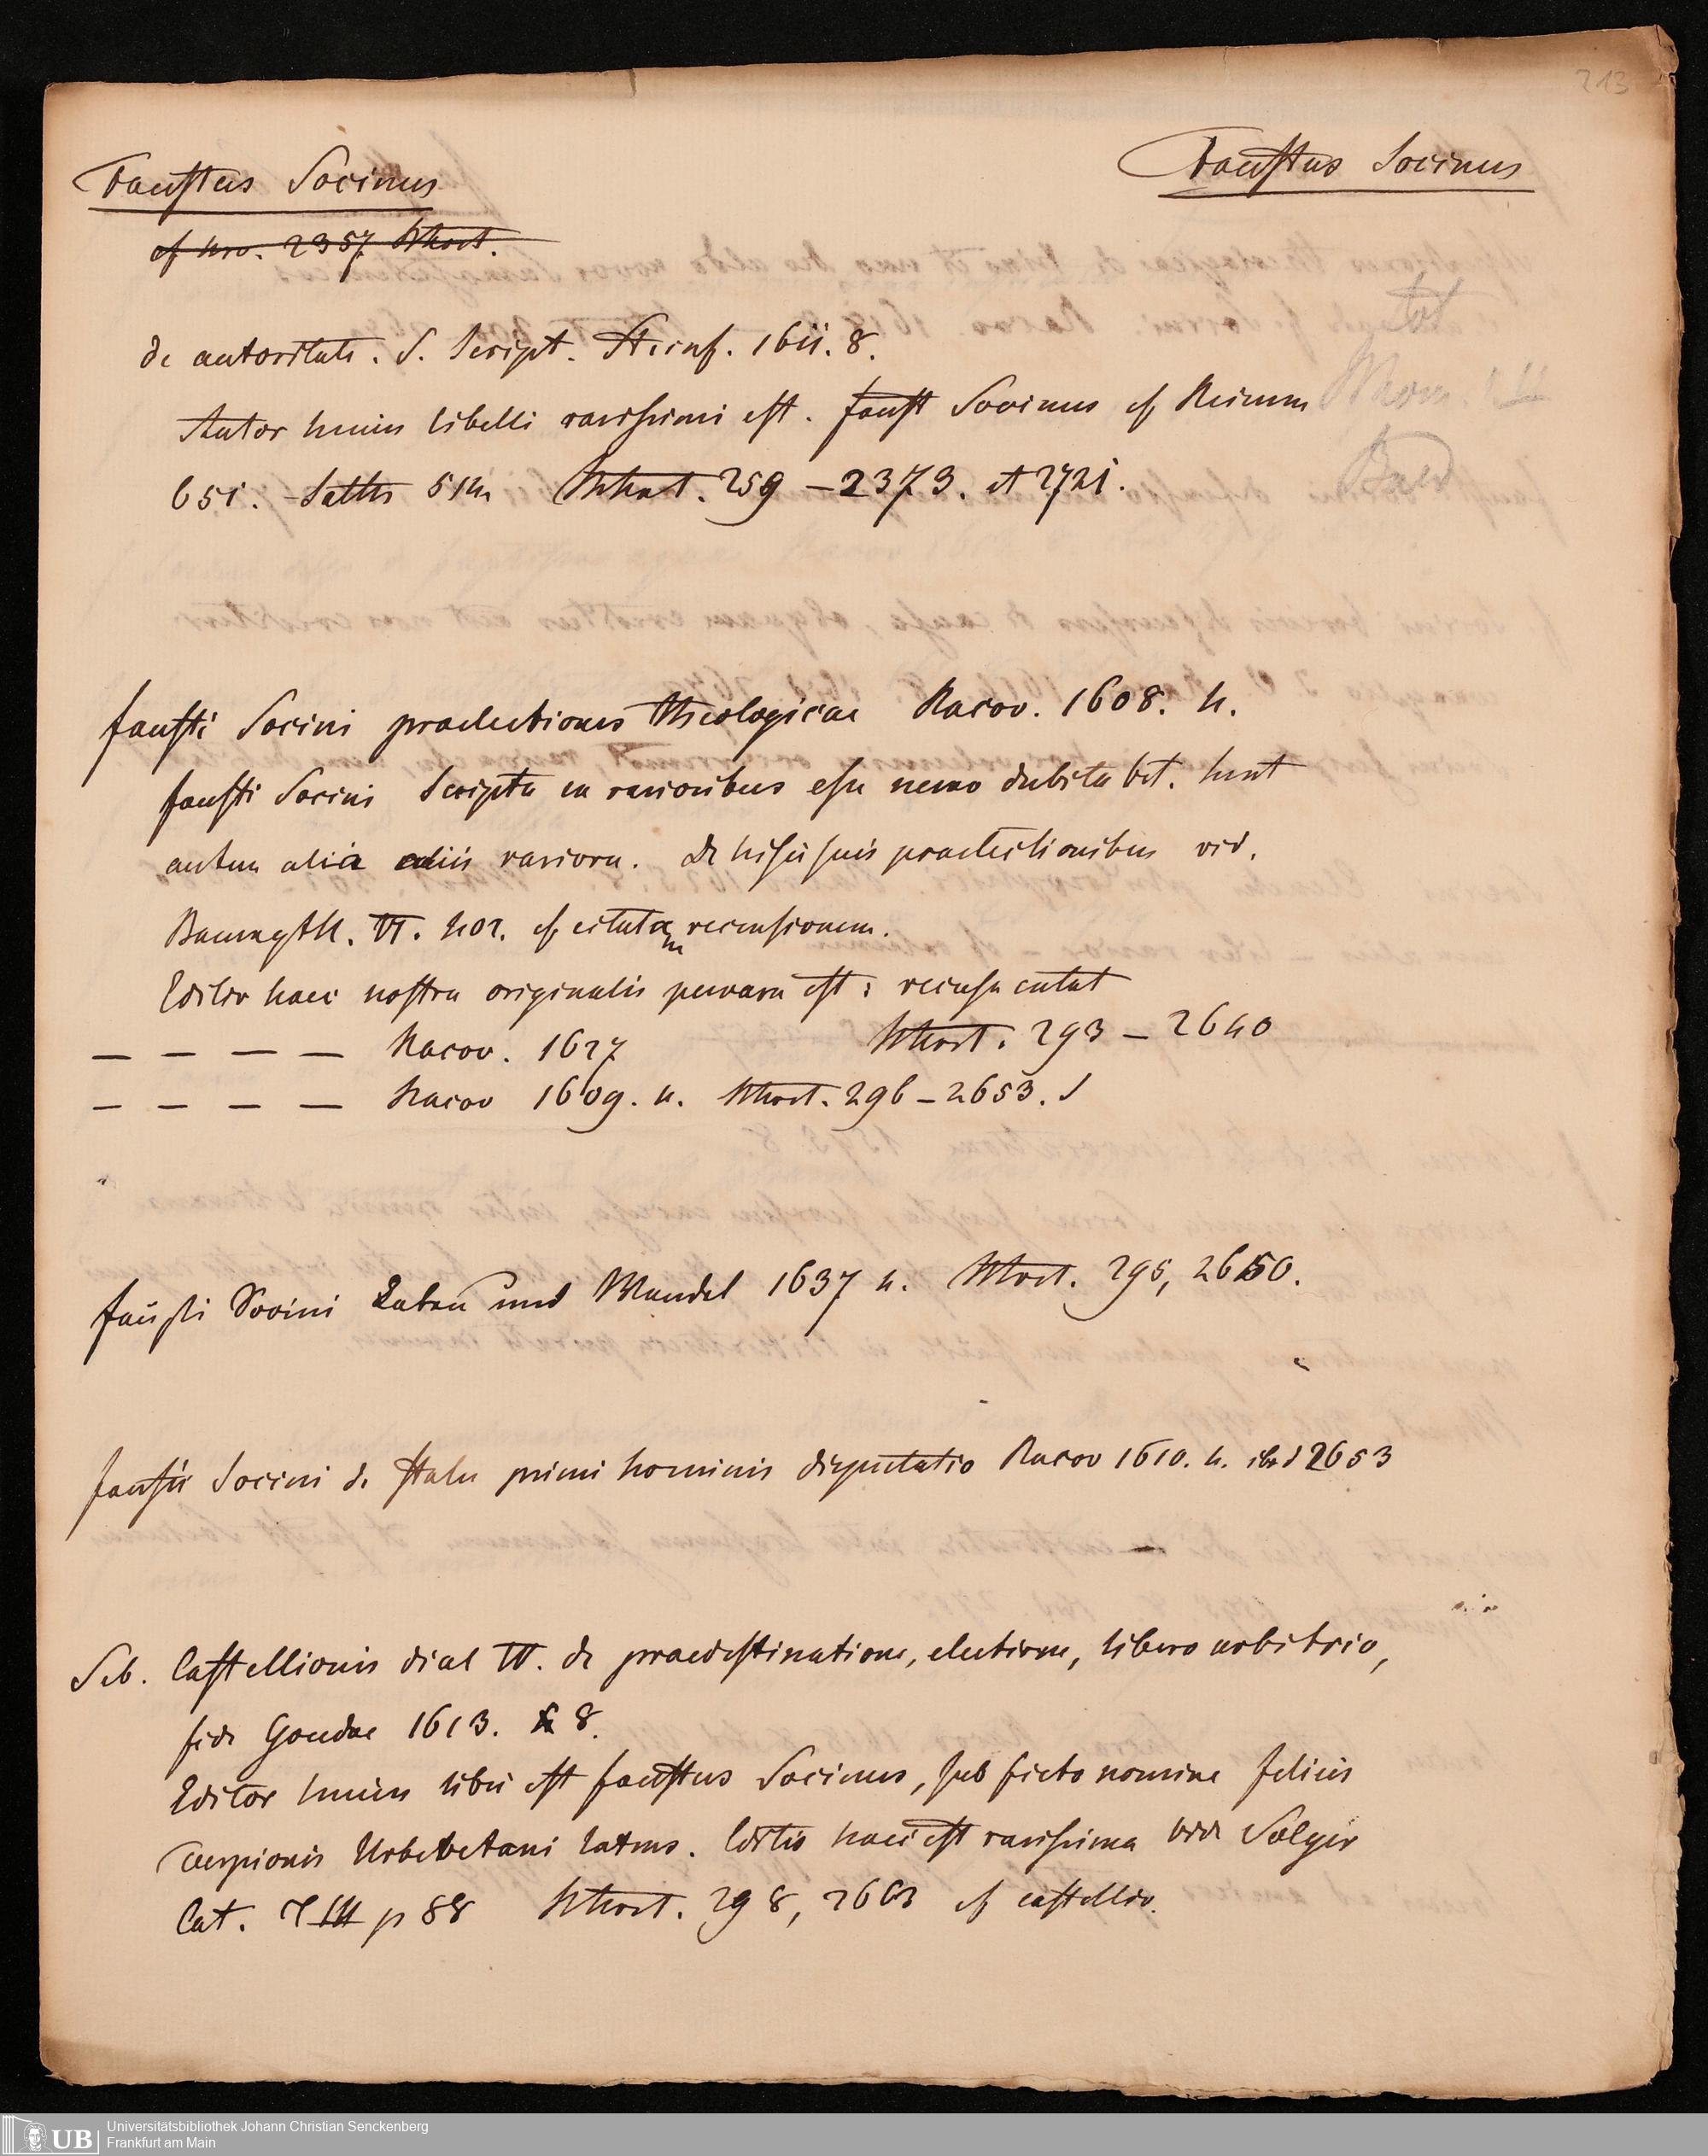 213
Faustus Socinus
Faustus Socinus
cf nro. 2357 Wkort.
de autoritate. S. Script. Steinf. 1611. 8.
Autor huius libelli rarissimi est. Faust Socinus cf Reimm
651. Salth 514 Wkort. 259 – 2373. et 2721.
Fausti Socini praelectiones theologicae Racov. 1608. 4.
Fausti Socini Scripta in rarioribus esse nemo dubitabit. Sunt
autem alia aliis rariora. De hisce suis praelectionibus vid.
Baumgth. VI. 402. cf citatam recensionem.
Editio haec nostra originalis perrara est: recusa extat
— — — — Racov. 1627 Wkort. 293 – 2640
— — — — Racov 1609. 4. Wkort. 296 – 2653. S
Fausti Socini Leben und Wandel 1637 4. Wkort. 295, 2650.
Fausti Socini de statu primi hominis disputatio Racov 1610. 4. ibid 2653
Seb. Castellionis dial IV. de praedestinatione, electione, libero arbitrio,
fide Goudae 1613. 8.
Editor huius libri est Faustus Socinus, sub ficto nomine Felicis
Turpionis Urbevetani latens. Editio haec est rarissima vid Solger
Cat. T III p 88 Wkort. 298, 2663 cf castellio.
Universitätsbibliothek Johann Christian Senckenberg
Frankfurt am Main
UB